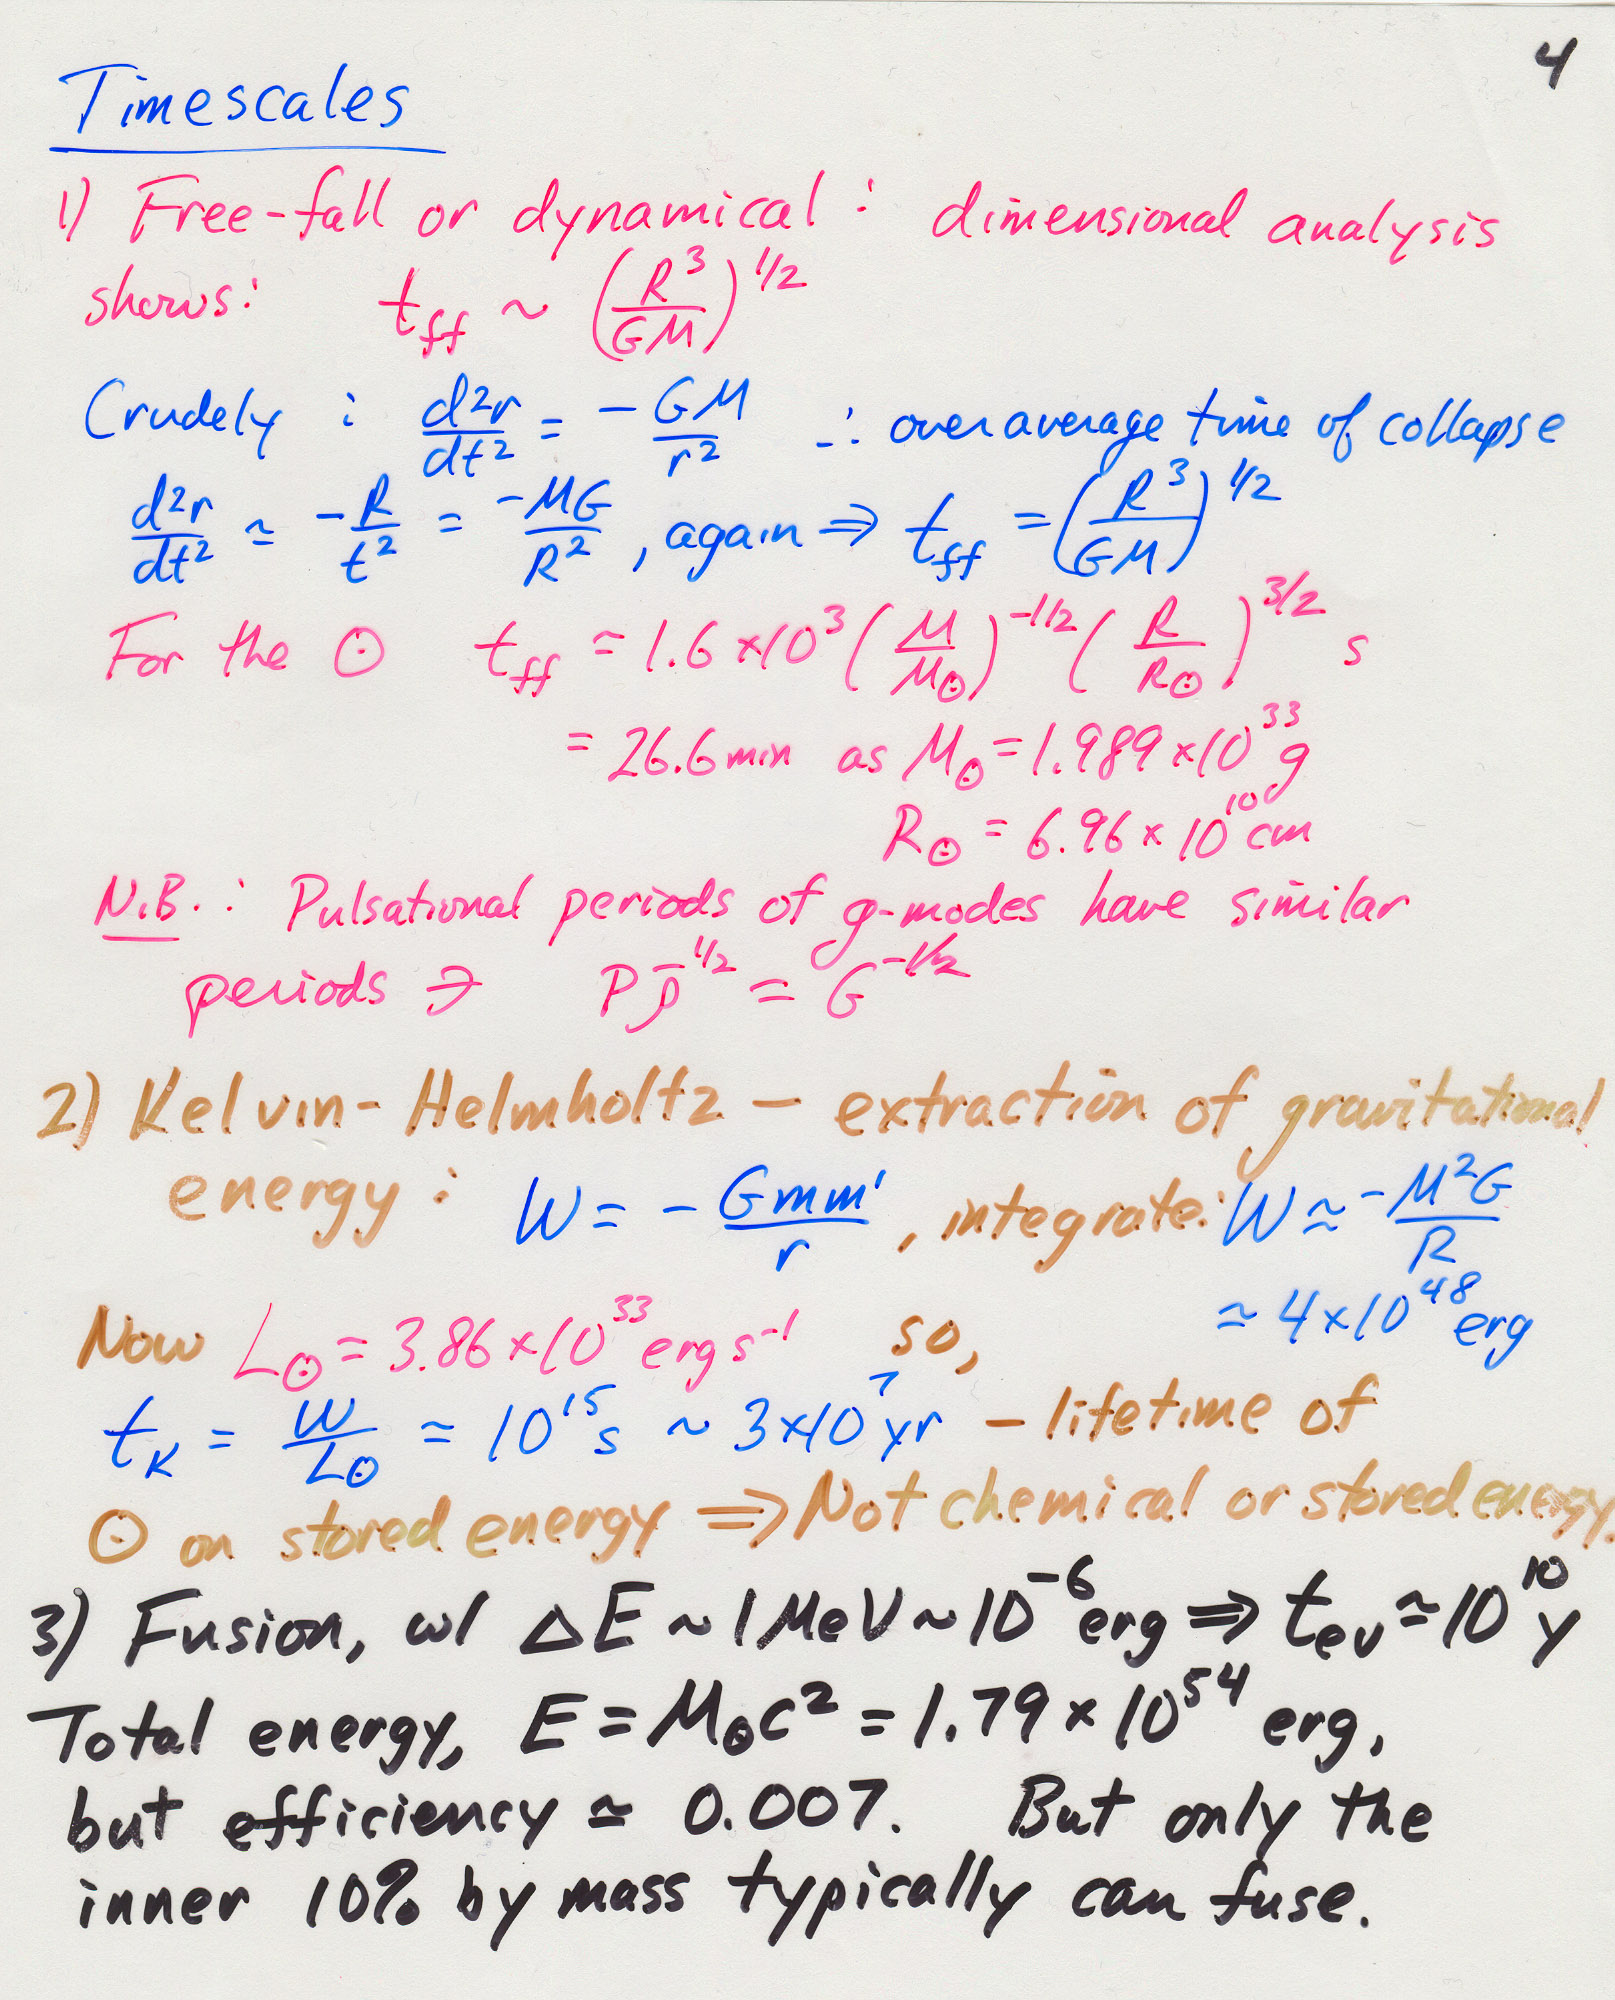 4
Timescales
1) Free-fall or dynamical : dimensional analysis
shows: t_ff ~ (R³/GM)^1/2
Crudely : d²r/dt² = -GM/r² ∴ over average time of collapse
d²r/dt² ≃ -R/t² = -MG/R² , again ⇒ t_ff = (R³/GM)^1/2
For the ⊙ t_ff ≃ 1.6 × 10³ (M/M⊙)^-1/2 (R/R⊙)^3/2 s
= 26.6 min as M⊙ = 1.989 × 10³³ g
R⊙ = 6.96 × 10¹⁰ cm
N.B. : Pulsational periods of g-modes have similar
periods ∋ P ρ̄^1/2 = G^-1/2
2) Kelvin-Helmholtz – extraction of gravitational
energy : W = -Gmm'/r , integrate: W ≃ -M²G/R
≃ 4 × 10⁴⁸ erg
Now L⊙ = 3.86 × 10³³ erg s⁻¹ so,
t_K = W/L⊙ ≃ 10¹⁵ s ~ 3×10⁷ yr – lifetime of
⊙ on stored energy ⇒ Not chemical or stored energy.
3) Fusion, w/ ΔE ~ 1 MeV ~ 10⁻⁶ erg ⇒ t_ev ≃ 10¹⁰ y
Total energy, E = M⊙c² = 1.79 × 10⁵⁴ erg,
but efficiency ≃ 0.007. But only the
inner 10% by mass typically can fuse.